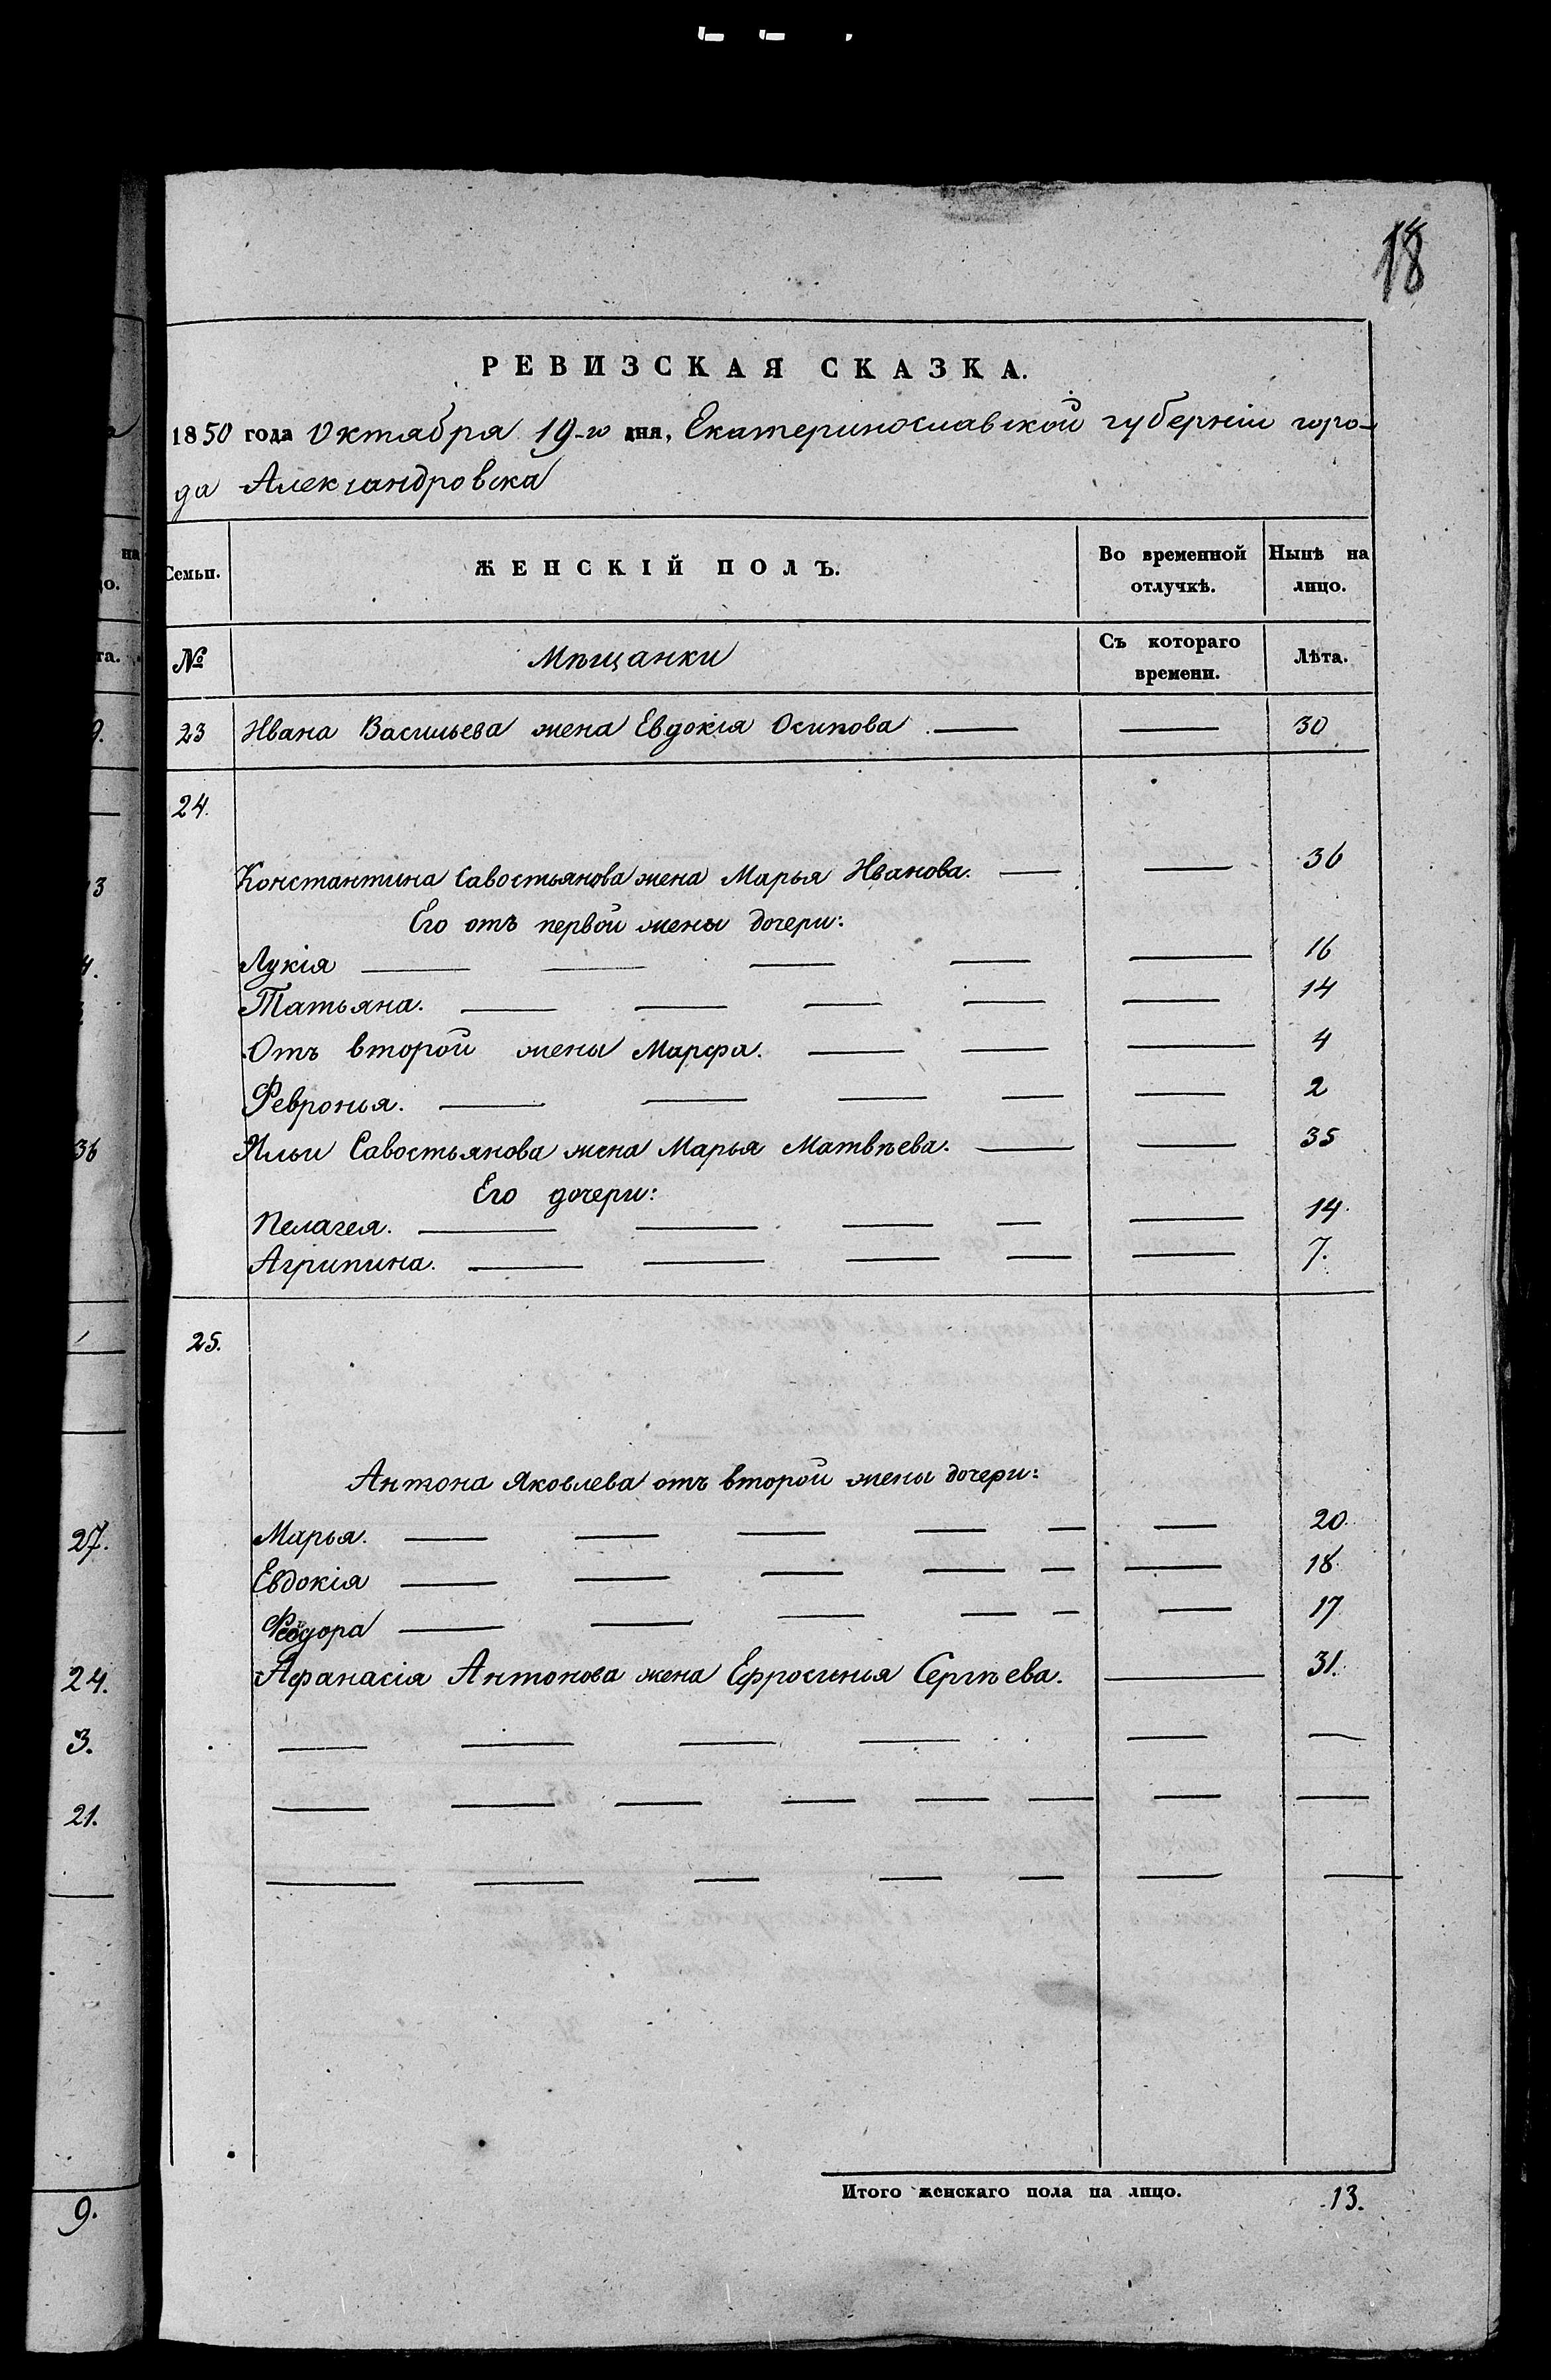 18
РЕВИЗСКАЯ СКАЗКА.
1850 года Октября 19-го дня, Екатеринославской губерніи горо-
да Александровска
Семьи. ЖЕНСКІЙ ПОЛЪ. Во временной отлучкѣ. Нынѣ на лицо.
№ Мѣщанки Съ котораго времени. Лѣта.
23 Ивана Васильева жена Евдокія Осипова. — — 30
24.
Константина Савостьянова жена Марья Иванова. — — 36
Его отъ первой жены дочери:
Лукія — — — — — 16
Татьяна. — — — — — 14
Отъ второй жены Марфа. — — — 4
Февронья. — — — — — 2
Ильи Савостьянова жена Марья Матвѣева. — — 35
Его дочери:
Пелагея. — — — — — 14.
Агрипина. — — — — — 7.
25.
Антона Яковлева отъ второй жены дочери:
Марья. — — — — — — 20.
Евдокія — — — — — — 18.
Феодора — — — — — — 17
Афанасія Антонова жена Ефросинья Сергѣева. — 31.
— — — — — —
— — — — — — — —
— — — — — — —
Итого женскаго пола на лицо. 13.
на
го.
та.
9.
13
4.
36
27.
24.
3.
21.
9.